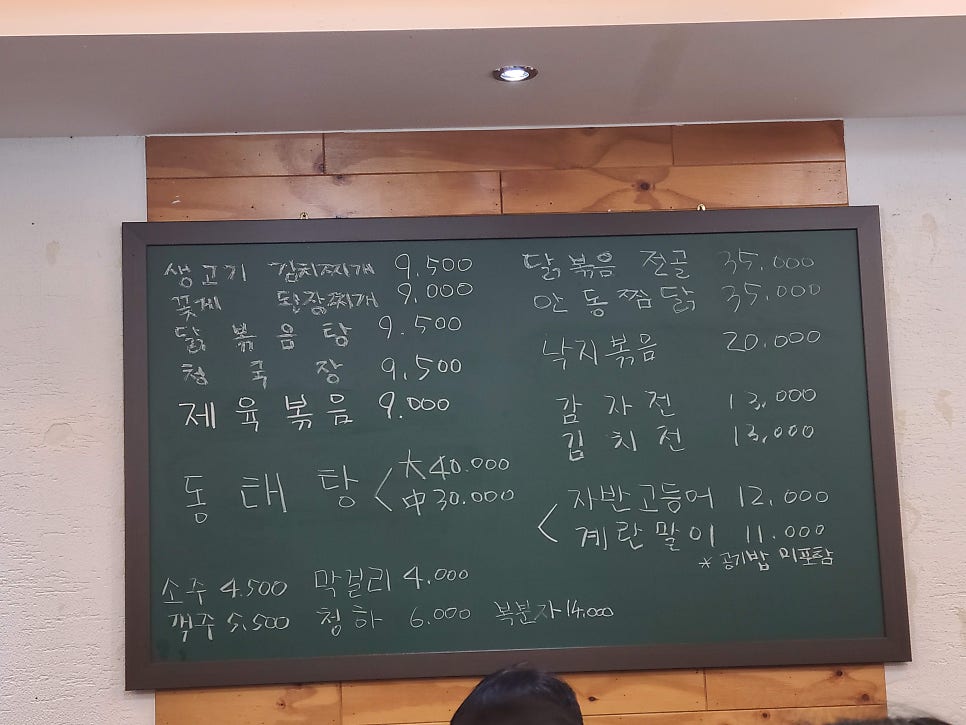 생고기 김치찌개 9,500
꽃게 된장찌개 9.000
닭 볶음 탕 9.500
청 국 장 9,500
제 육 볶 음 9.000
동 태 탕 < 大 40.000
中 30.000
소주 4.500 막걸리 4.000
맥주 5,500 청하 6.000 복분자 14.000
닭볶음 전골 35.000
안동찜닭 35.000
낙지볶음 20.000
감 자 전 13,000
김 치 전 13,000
< 자반고등어 12,000
계란말이 11.000
* 공기밥 미포함